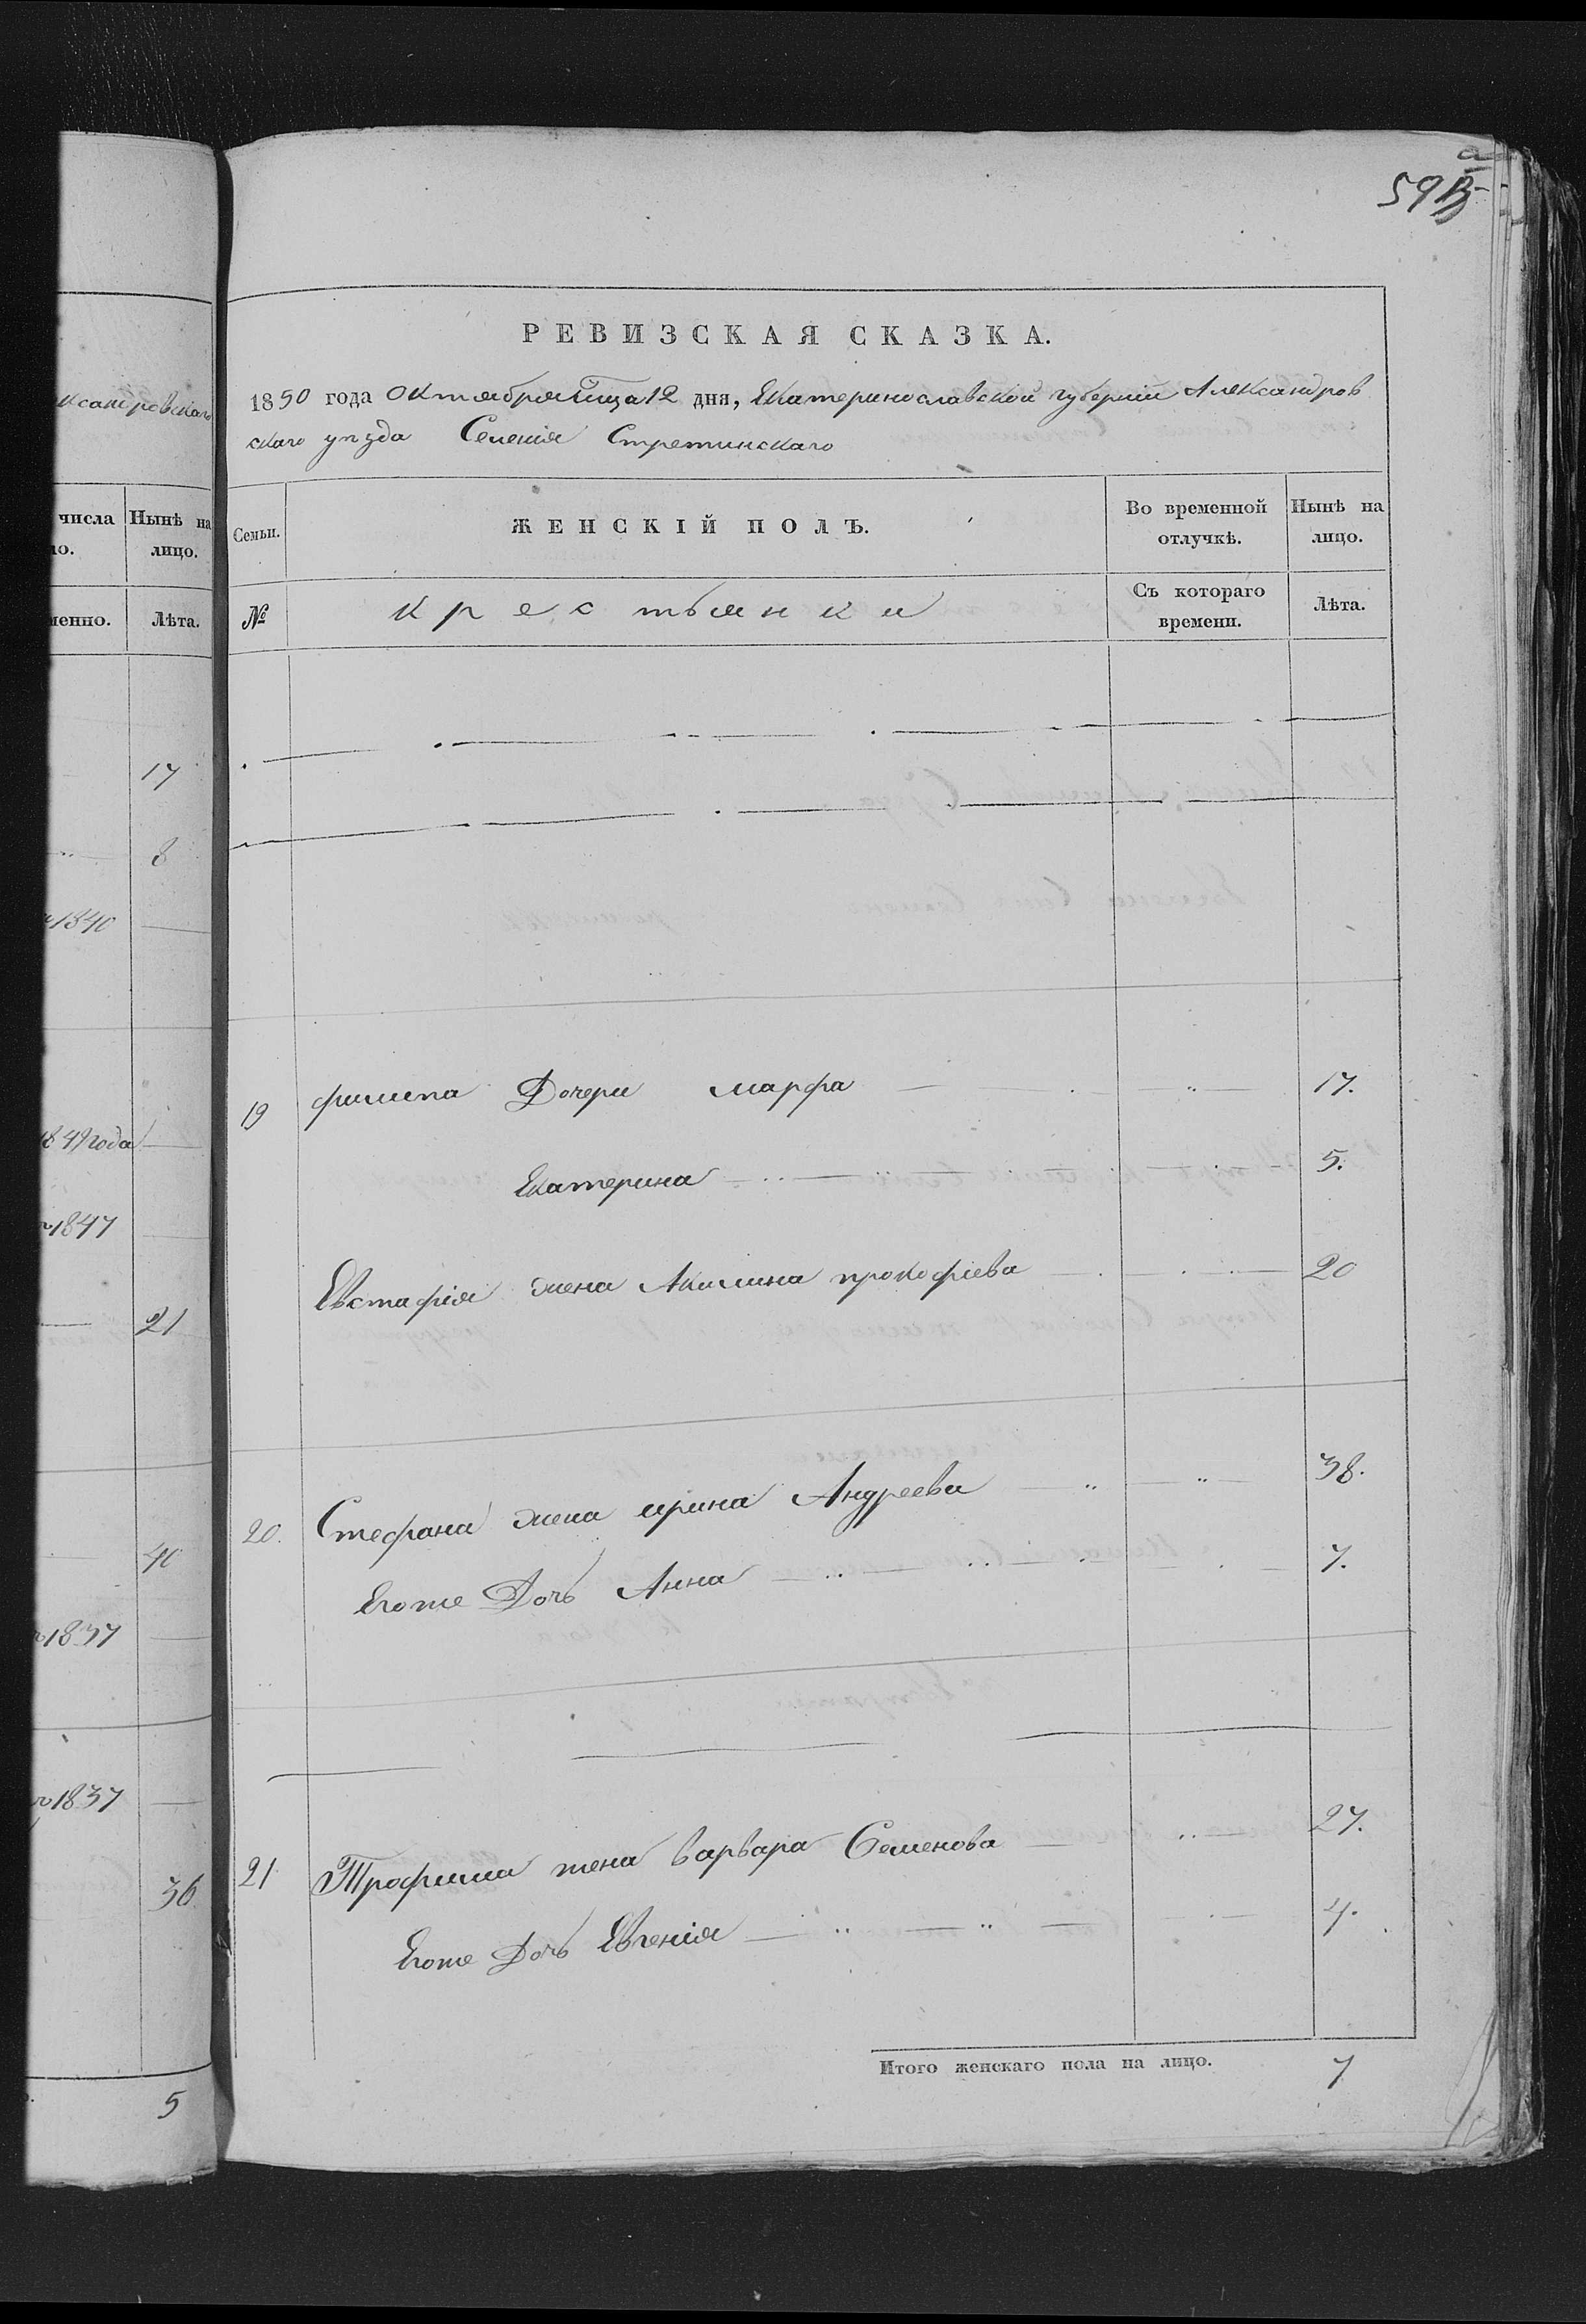 59
ксандровскаго
числа
Нынѣ на
лицо.
Лѣта.
17
8
1840
1849 года
1847
21
40
1837
1837
36
5
РЕВИЗСКАЯ СКАЗКА.
1850 года Октября 12 дня, Екатеринославской губерніи Александров
скаго уѣзда Селенія Стретинскаго
Семьи.
ЖЕНСКІЙ ПОЛЪ.
Во временной отлучкѣ.
Нынѣ на лицо.
№
крестьянки
Съ котораго времени.
Лѣта.
19 филипа Дочери марфа 17.
Екатерина 5.
Евстафія жена Акилина прокофіева 20
20. Стефана жена ирина Андреева 38.
Егоже Дочь Анна 7.
21 Трофима жена варвара Семенова 27.
Егоже Дочь Евгенія 4.
Итого женскаго пола на лицо. 7